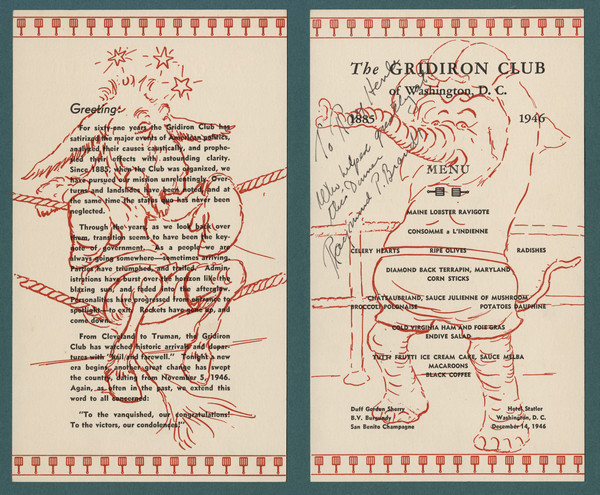 Greeting:
For sixty-one years the Gridiron Club has
satirized the major events of American politics,
analyzed their causes caustically, and prophe-
sied their effects with astounding clarity.
Since 1885, when the Club was organized, we
have pursued our mission unrelentingly. Over-
turns and landslides have been noted, and at
the same time the status quo has never been
neglected.
Through the years, as we look back over
them, transition seems to have been the key-
note of government. As a people we are
always going somewhere—sometimes arriving.
Parties have triumphed, and trailed. Admin-
istrations have burst over the horizon like the
blazing sun, and faded into the afterglow.
Personalities have progressed from entrance to
spotlight to exit. Rockets have gone up, and
come down.
From Cleveland to Truman, the Gridiron
Club has watched historic arrivals and depar-
tures with "hail and farewell." Tonight a new
era begins, another great change has swept
the country, dating from November 5, 1946.
Again, as often in the past, we extend this
word to all concerned:
"To the vanquished, our congratulations!
To the victors, our condolences!"
The GRIDIRON CLUB
of Washington, D. C.
1885 1946
To Ray Henle
Who helped
Dinner
Raymond P. Brandt
MENU
MAINE LOBSTER RAVIGOTE
CONSOMME A L'INDIENNE
CELERY HEARTS RIPE OLIVES RADISHES
DIAMOND BACK TERRAPIN, MARYLAND
CORN STICKS
CHATEAUBRIAND, SAUCE JULIENNE OF MUSHROOM
BROCCOLI POLONAISE POTATOES DAUPHINE
COLD VIRGINIA HAM AND FOIE GRAS
ENDIVE SALAD
TUTTI FRUTTI ICE CREAM CAKE, SAUCE MELBA
MACAROONS
BLACK COFFEE
Duff Gordon Sherry Hotel Statler
B.V. Burgundy Washington, D. C.
San Benito Champagne December 14, 1946